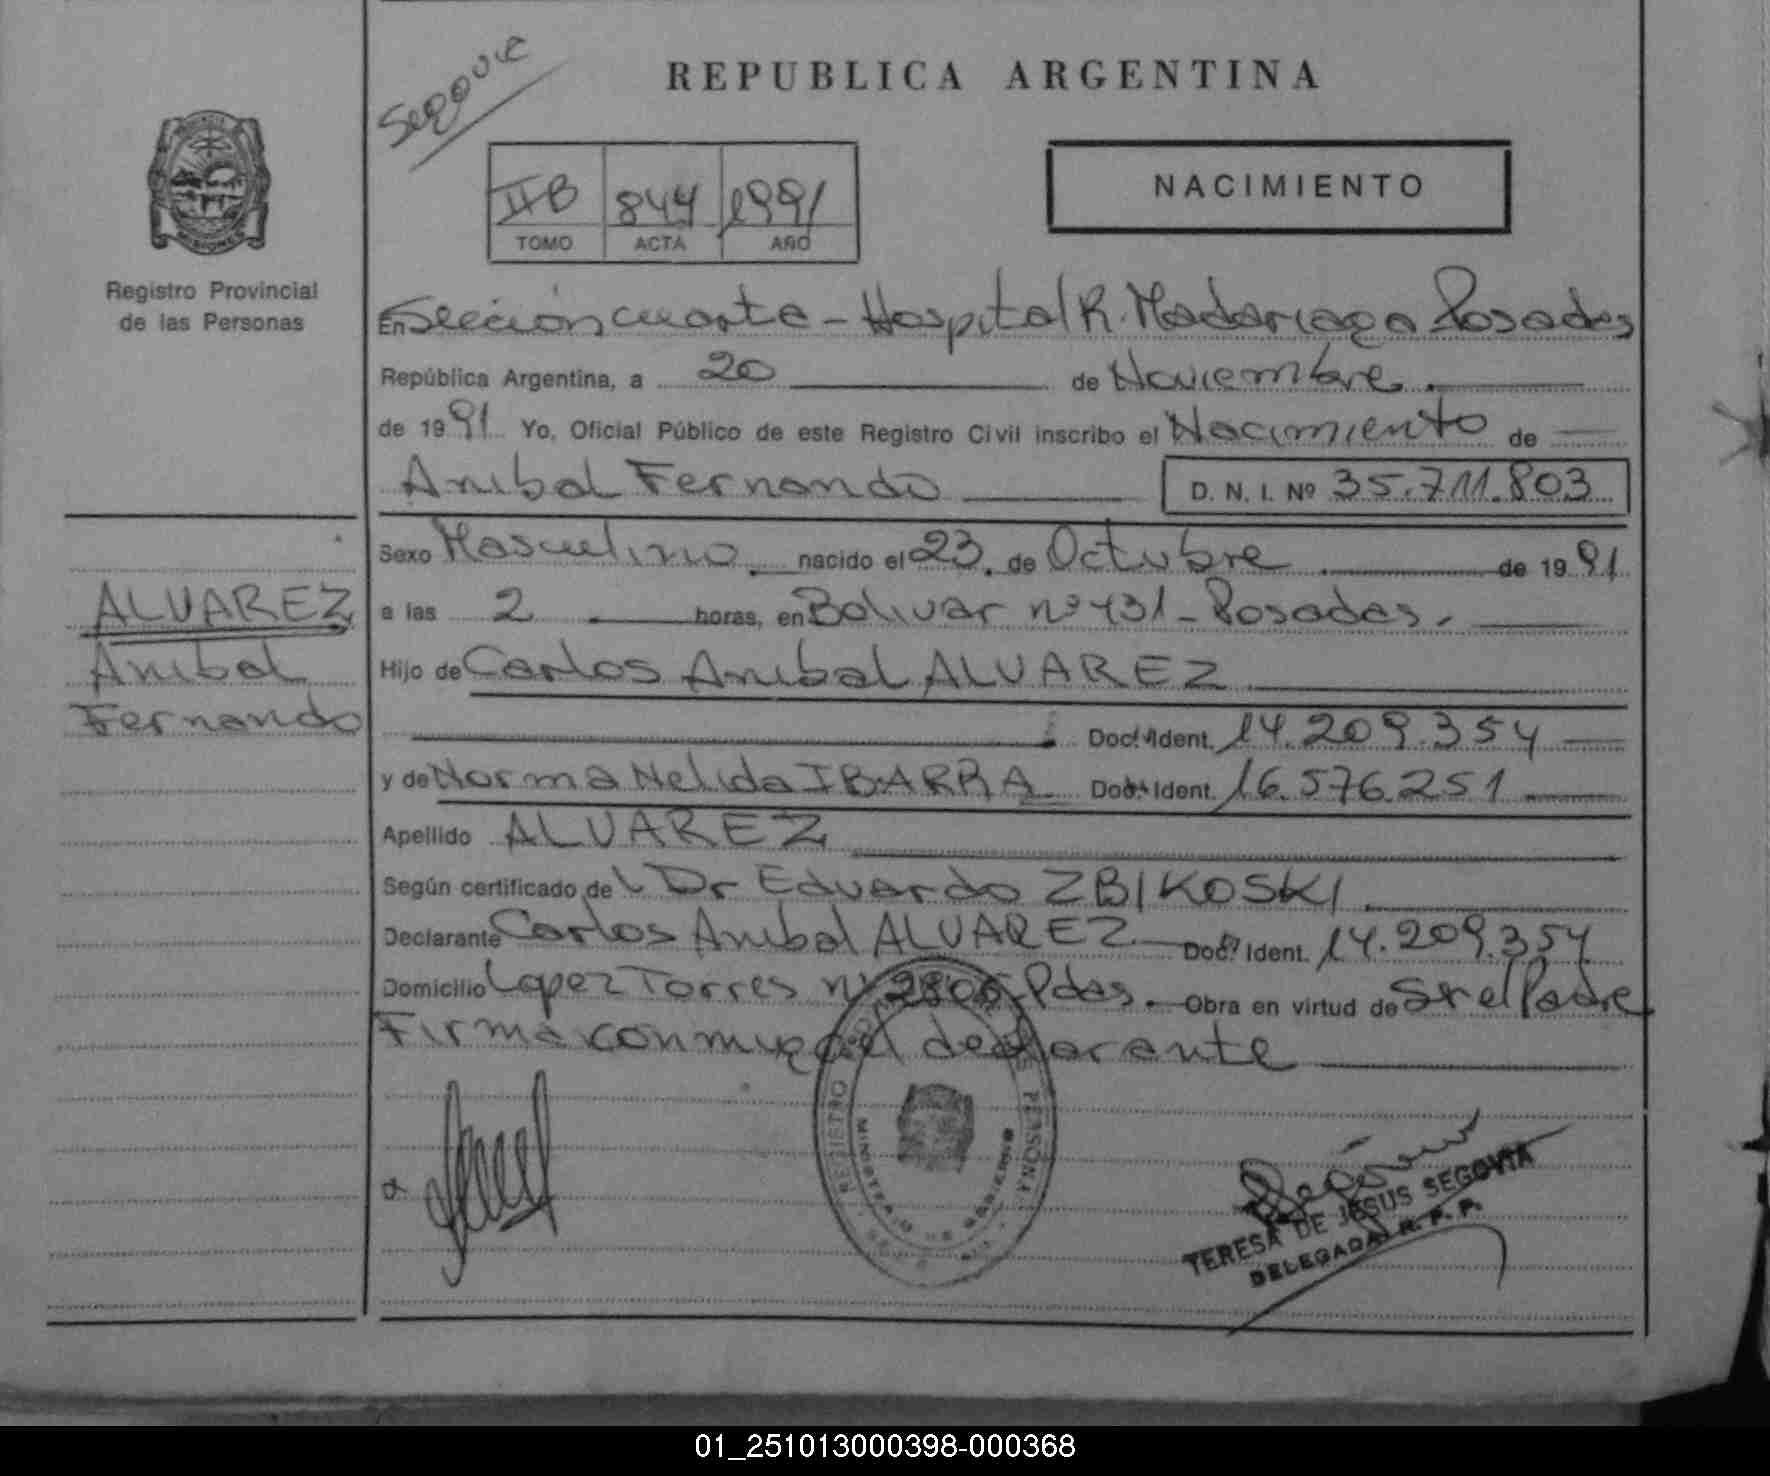 Segovia
REPUBLICA ARGENTINA
PROVINCIA
MISIONES
Registro Provincial
de las Personas
IIB 844 1991
TOMO ACTA AÑO
NACIMIENTO
En Sección cuarta - Hospital R. Madariaga Posadas
República Argentina, a 20 de Noviembre
de 1991 Yo, Oficial Público de este Registro Civil inscribo el Nacimiento de
Anibal Fernando D. N. I. Nº 35.711.803
Sexo Masculino nacido el 23 de Octubre de 1991
ALVAREZ
Anibal
Fernando
a las 2 horas, en Bolivar nº 431 - Posadas.
Hijo de Carlos Anibal ALVAREZ
Doc. Ident. 14.209.354
y de Norma Nelida IBARRA Doc. Ident. 16.576.251
Apellido ALVAREZ
Según certificado de Dr Eduardo ZBIKOSKI
Declarante Carlos Anibal ALVAREZ Doc. Ident. 14.209.354
Domicilio Lopez Torres nº Pdas. Obra en virtud de Sr el Padre
Firma conmigo el declarante
REGISTRO PERSONAS
MINISTERIO DE GOBIERNO
TERESA DE JESUS SEGOVIA
DELEGADA R. P. P.
01_251013000398-000368